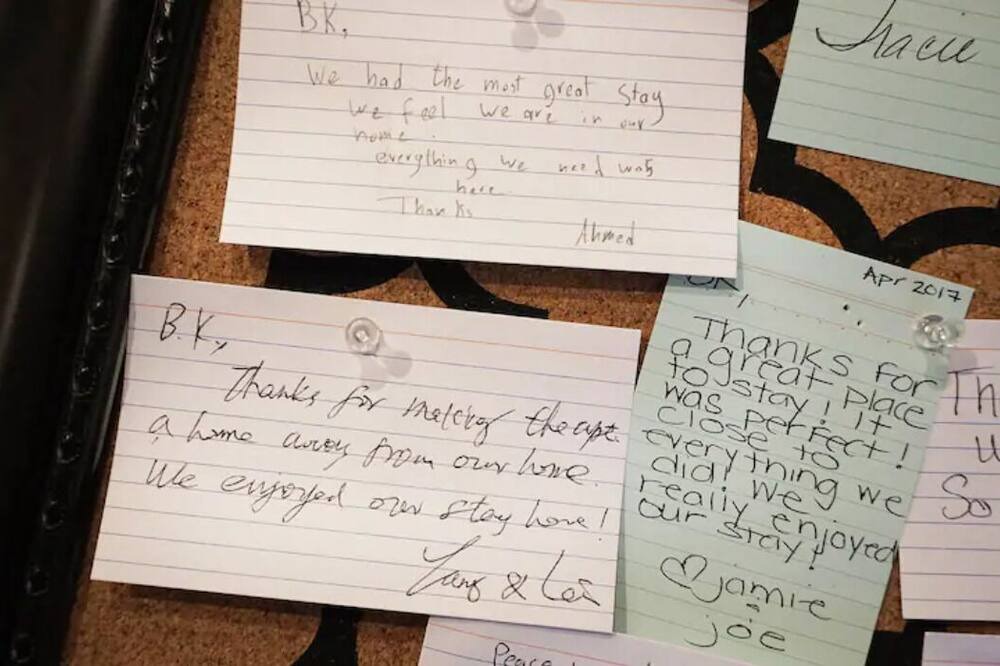 B.K,
We had the most great stay
We feel we are in our
home.
everything we need was
here
Thanks
Ahmed
Tracie
B.K.,
Thanks for making the apt.
a home away from our home.
We enjoyed our stay here!
& 
Apr 2017
BK,
Thanks for
a great place
to stay! It
was perfect!
Close to
everything we
did! We
really enjoyed
our stay!
♡ Jamie
joe
Th
u
So
Peace